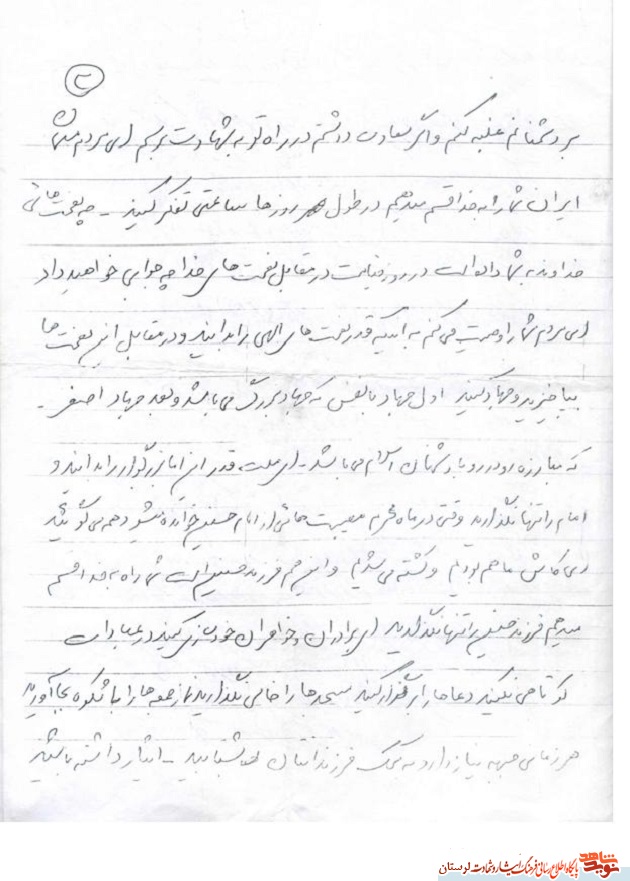 ۲
بر دشمنانم غلبه کنم و اگر سعادت داشتم در راه تو به شهادت برسم ای مردم
ایران شما را به خدا قسم میدهم در طول روزها ساعتی تفکر کنید - چه نعمت هائی
خداوند به شما داده است در روز قیامت در مقابل نعمت های خدا چه جوابی خواهید داد
ای مردم شما را وصیت می کنم به اینکه قدر نعمت های الهی را بدانید و در مقابل این نعمت ها
بپا خیزید و جهاد کنید اول جهاد با نفس که جهاد بزرگ می باشد و بعد جهاد اصغر -
که مبارزه رو در رو با دشمنان اسلام می باشد - ای ملت، قدر این امام بزرگوار را بدانید و
امام را تنها نگذارید وقتی در ماه محرم مصیبت هائی از امام حسین خوانده میشود همه می گوئید
ای کاش ما هم بودیم و کشته می شدیم و این هم فرزند حسین است شما را به خدا قسم
میدهم فرزند حسین را تنها نگذارید ای برادران و خواهران خودسازی کنید در عبادات
کوتاهی نکنید دعاها را برگزار کنید مسجدها را خالی نگذارید نماز جمعه ها را با شکوه بجا آورید
هر زمانی جبهه نیاز دارد به کمک فرزندانتان بشتابید - ایثار داشته باشید
نوید شاهد
پایگاه اطلاع رسانی فرهنگ ایثار و شهادت لرستان